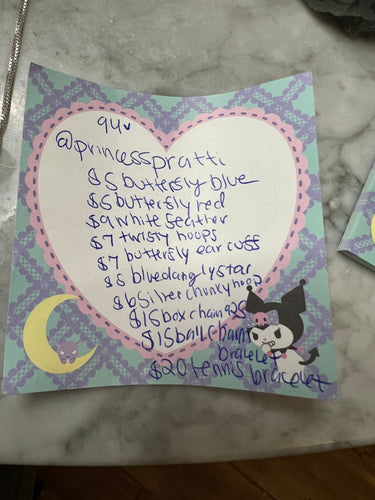 94
@princesspratti
$5 butterfly blue
$5 butterfly red
$9 white feather
$7 twisty hoops
$7 butterfly ear cuff
$5 bluedanglystar
$6 silver chunky hoop
$15 box chain 925
$15 ball chain
bracelet
$20 tennis bracelet